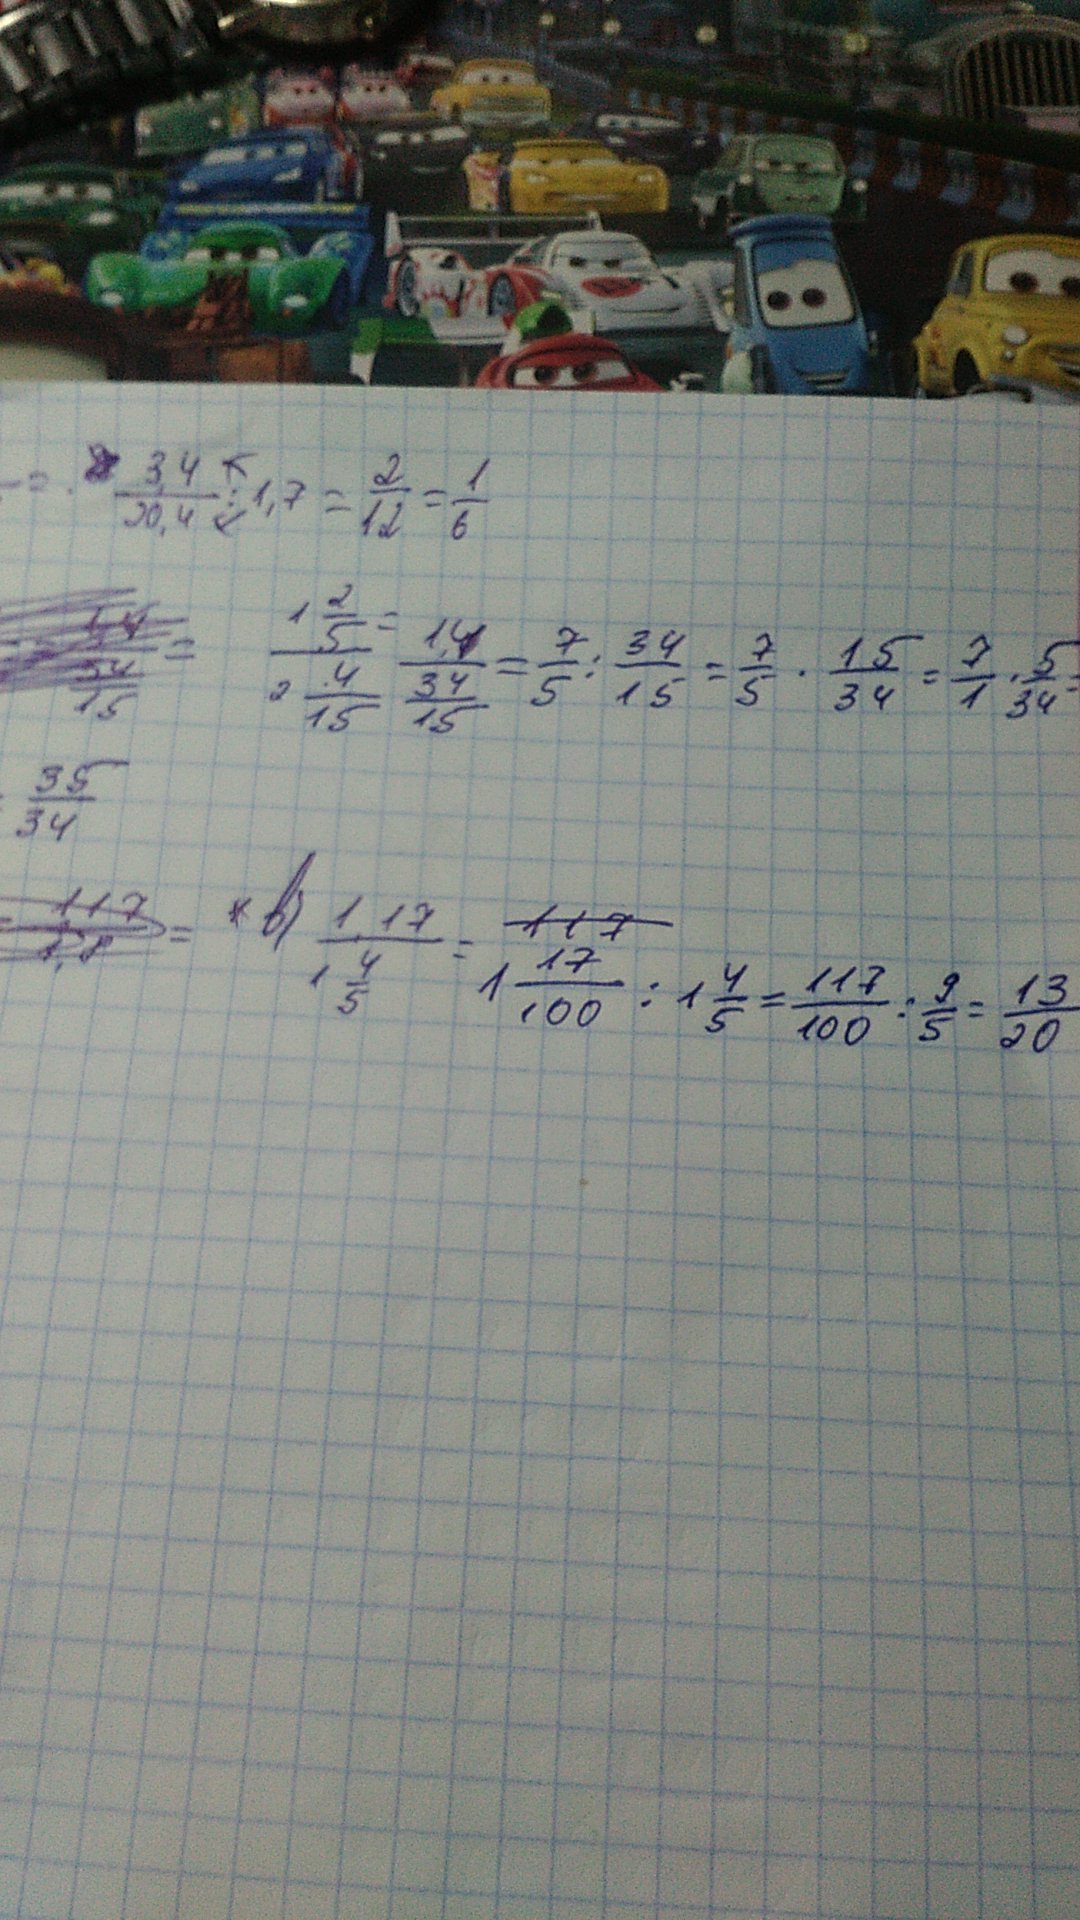 = 3,4/20,4 : 1,7 = 2/12 = 1/6
= 1 2/5 / 2 4/15 = 1,4 / 34/15 = 7/5 : 34/15 = 7/5 · 15/34 = 7/1 · 5/34 =
35/34
117 / 1,8 = в) 1,17 / 1 4/5 = 117
1 17/100 : 1 4/5 = 117/100 : 9/5 = 13/20